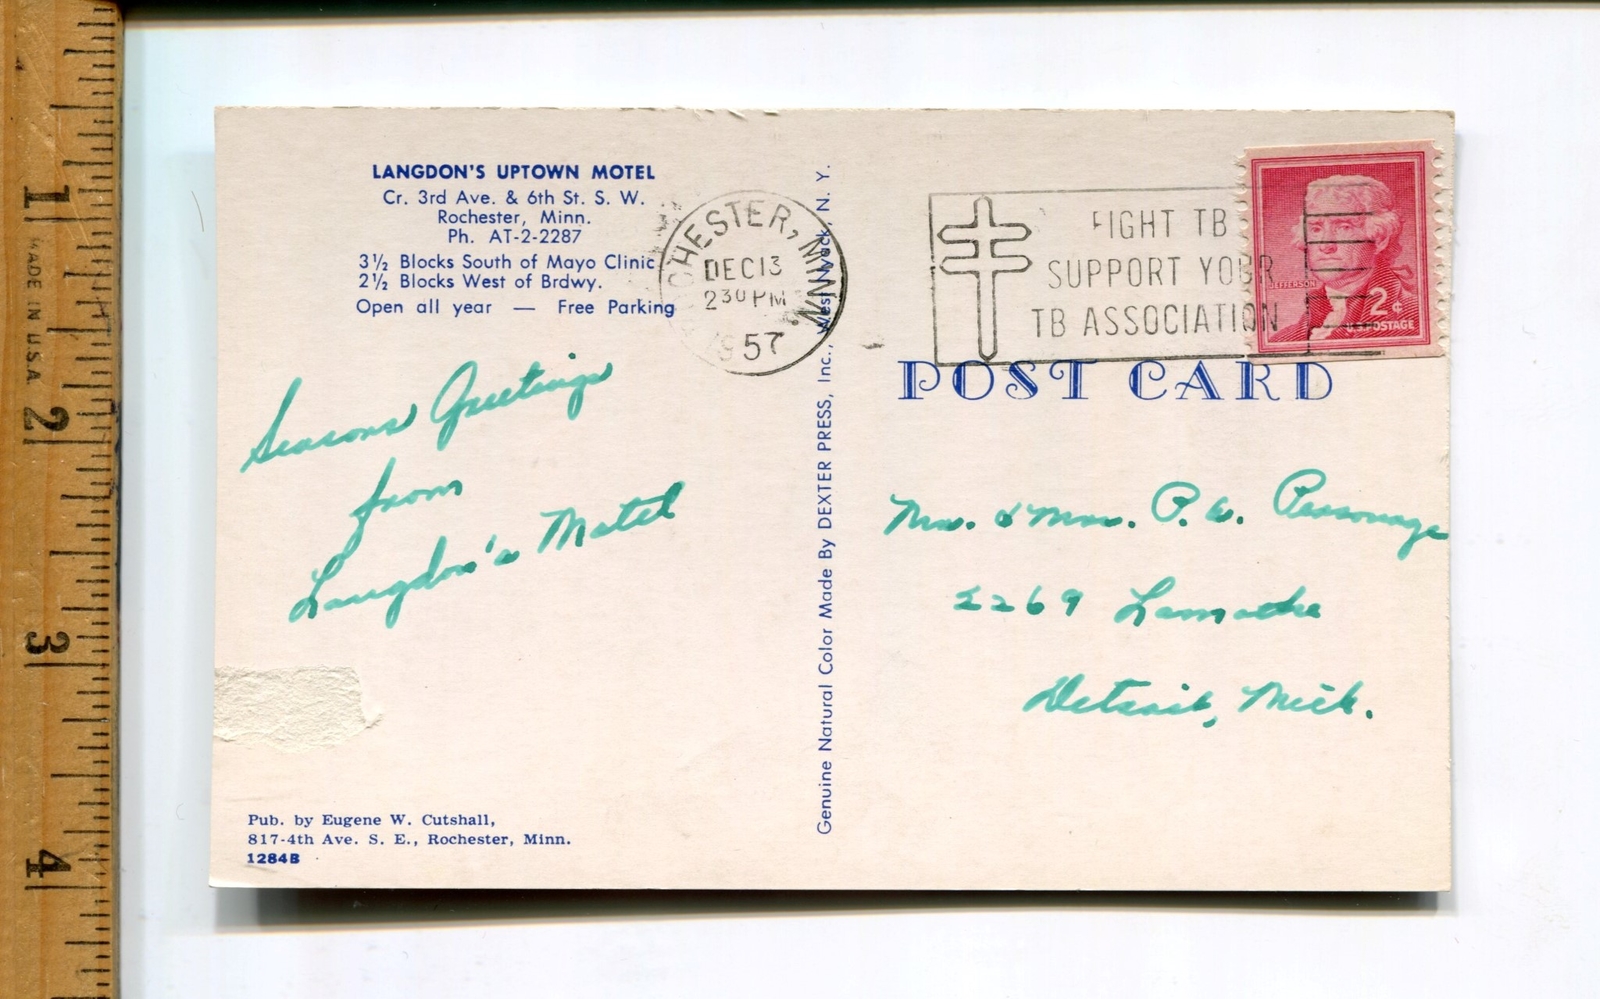 LANGDON'S UPTOWN MOTEL
Cr. 3rd Ave. & 6th St. S. W.
Rochester, Minn.
Ph. AT-2-2287
3½ Blocks South of Mayo Clinic
2½ Blocks West of Brdwy.
Open all year — Free Parking
Seasons Greetings
from
Langdon's Motel
Pub. by Eugene W. Cutshall,
817-4th Ave. S. E., Rochester, Minn.
1284B
Genuine Natural Color Made By DEXTER PRESS, Inc., West Nyack, N. Y.
ROCHESTER, MINN.
DEC 13
2 30 PM
1957
FIGHT TB
SUPPORT YOUR
TB ASSOCIATION
JEFFERSON
2¢
U.S. POSTAGE
POST CARD
Mr. & Mrs. P. W. Personage
2269 Lamothe
Detroit, Mich.
1
MADE IN U.S.A.
2
3
4